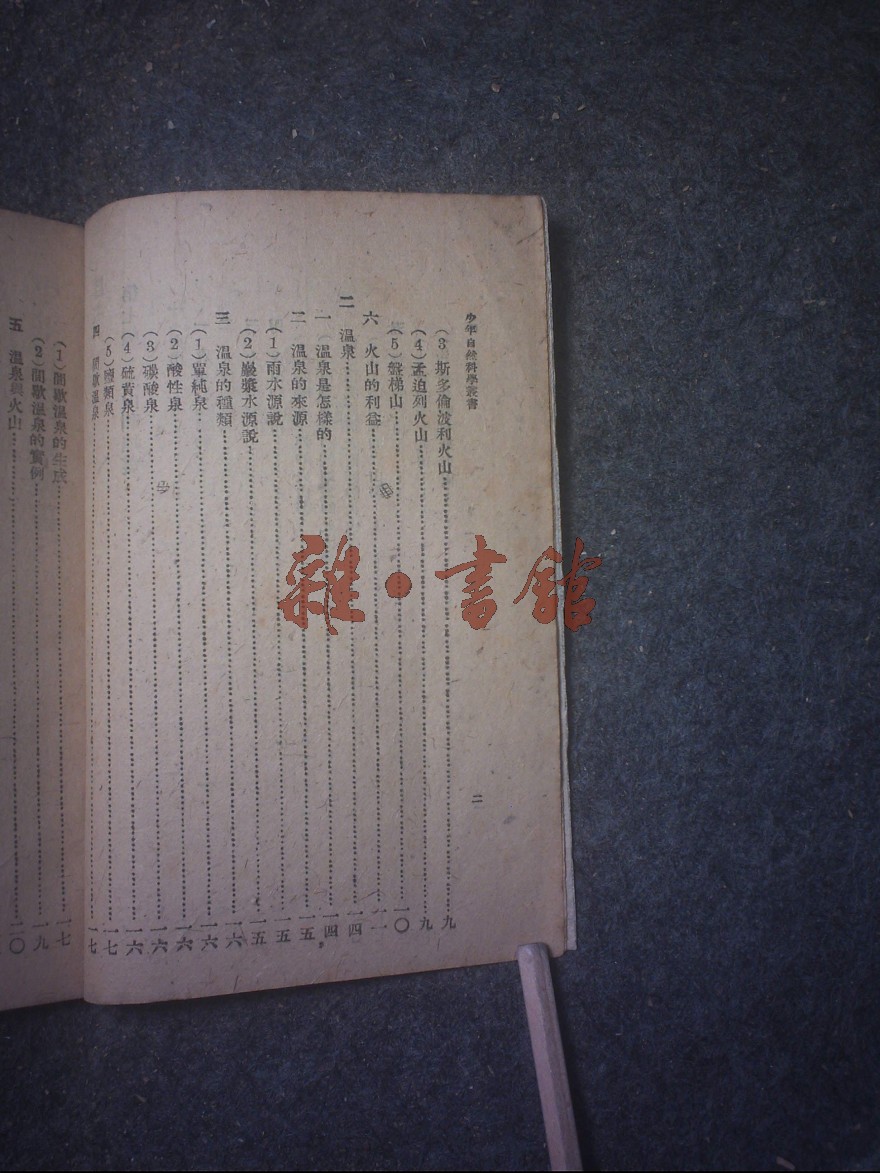 少年自然科學叢書
二
(3)斯多倫波利火山……九
(4)孟迫列火山……九
(5)盤梯山……一〇
六 火山的利益……一一
二 溫泉……一四
一 溫泉是怎樣的……一四
二 溫泉的來源……一五
(1)雨水源說……一五
(2)巖漿水源說……一五
三 溫泉的種類……一六
(1)單純泉……一六
(2)酸性泉……一六
(3)碳酸泉……一六
(4)硫黃泉……一六
(5)鹽類泉……一七
四 間歇溫泉……一七
(1)間歇溫泉的生成……一七
(2)間歇溫泉的實例……一九
五 溫泉與火山……二〇
雜·書館